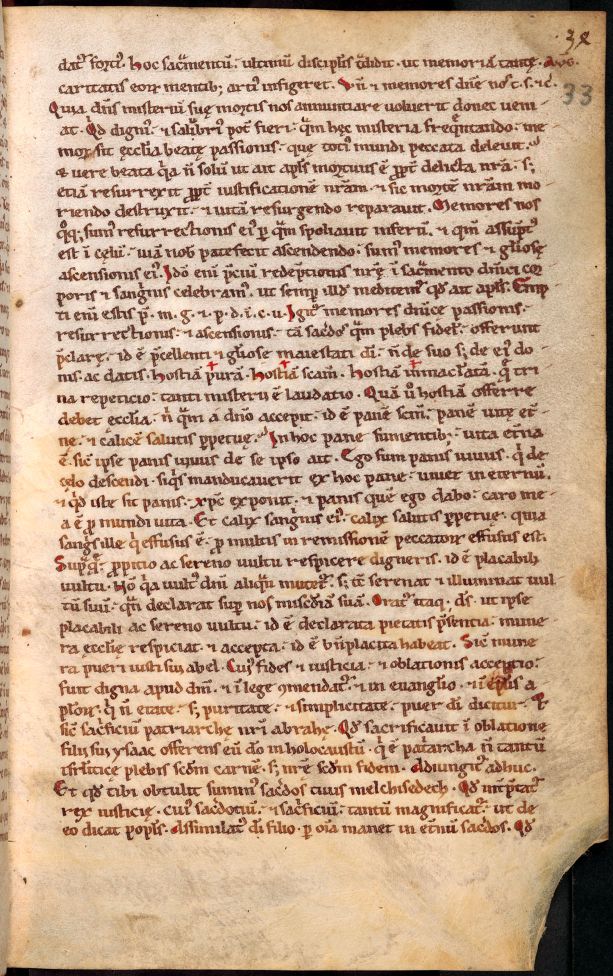 32
33
dat᷒ fort᷒. hoc sac̄mentū. ultimū discipl̄is t̄didit. ut memoriā tantę.
caritatis eorꝝ mentib; arti᷒ infigeret. Vn̄ ⁊ memores dn̄e nos t. s. ⁊c̄.
Quia dn̄s misteriū suę mortis nos annuntiare voluerit donec veni
at. Qd̄ digni᷒. ⁊ salubri᷒ pot̄ fieri. qm̄ hęc misteria freq̄ntando. me
mor sit ęcclia beatę passionis. quę toti᷒ mundi peccata delevit.
⁊ vere beata q̄a n̄ solū ut ait apl̄s mortuus ē ꝓpt̄ delicta nr̄a. s;
etiā resurrexit ꝓpt̄ iustificationē nr̄am. ⁊ sic mortē nr̄am mo
riendo destruxit. ⁊ vitā resurgendo reparavit. Memores nos
qq; sum᷒ resurrectionis ei᷒ ꝑ qm̄ spoliavit infernū. ⁊ qm̄ assūpt᷒
est ī cęlū. viā nob̄ patefecit ascendendo. sum᷒ memores ⁊ gl̄iosę
ascensionis ei᷒. Idō eni᷒ p̄ciū redēptionis nr̄ę ī sac̄mento dn̄ici cor
poris ⁊ sanguīs celebram᷒. ut semp̄ illd̄ meditem᷒ qd̄ ait apl̄s. Emp
ti eni᷒ estis p̄. m. g. ⁊ p. d. ī. c. v. Igit᷒ memores dn̄icę passionis.
resurrectionis. ⁊ ascensionis. tā sac̄dos qm̄ plebs fidel᷒. offerunt
p̄clarę. id ē p̄cellenti ⁊ gl̄iosę maiestati dī. n̄ de suo s; de ei᷒ do
nis. ac datis. hostiā purā. hostiā scām. hostiā inmaclatā. q̄ tri
na repeticio. tanti misterii ē laudatio. Quā v᷒ hostiā offerre
debet ecclia. n̄ qm̄ a dn̄o accepit. id ē panē scm̄. panē vitę et̄
nę. ⁊ calicē salutis ꝑpetuę. In hoc pane sumentib;. vita et̄na
ē. sic̄ ipse panis vivus de se ipso ait. Ego sum panis vivus. q̄ de
cęlo descendi. siqs̄ manducaverit ex hoc pane. vivet in eternū.
⁊ qd̄ iste sit panis. xp̄c exponit. ⁊ panis quē ego dabo. caro me
a ē ꝓ mundi vita. Et calix sanguīs ei᷒. calix salutis ꝑpetuę. quia
sangs̄ ille q̄ effusus ē. ꝓ multis in remissionē peccatorꝝ effusus est.
Supq̄. propitio ac sereno vultu respicere digneris. id ē placabili
vultu. Nō q̄a vult᷒ dn̄i aliqn̄ mutet᷒. s; tc̄ serenat ⁊ illuminat vul
tū suū. qn̄ declarat sup̄ nos misc̄diā suā. Orat᷒ itaq;. ds̄. ut ipse
placabili ac sereno vultu. id ē declarata pietatis p̄sentia. mune
ra ęcclię respiciat. ⁊ accepta. id ē bn̄placita habeat. Sic̄ mune
ra pueri iusti sui abel. Cui᷒ fides ⁊ iusticia. ⁊ oblationis acceptio.
fuit digna apud dn̄m. ⁊ ī lege ꝯmendat᷒. ⁊ in evanglio. ⁊ ī epl̄is a
plorꝝ. q̄ n̄ etate. s; puritate. ⁊ simplicitate. puer dī dicitur. Et
sic̄ sac̄ficiū patriarchę nr̄i abrahę. Qd̄ sacrificavit ī oblatione
filii sui ysaac offerens eū dō in holocaustū. q̄ ē pat̄archa n̄ tantū
isr̄litice plebis scdm̄ carnē. s; nr̄e scdm̄ fidem. Adiungit᷒ adhuc.
Et qd̄ tibi obtulit summ᷒ sac̄dos tuus melchisedech. Qd̄ int̄ptat᷒
rex iusticię. cui᷒ sac̄dotiū. ⁊ sac̄ficiū. tantum magnificat᷒. ut de
eo dicat ꝓpl̄s. Assimilat᷒ dī filio. ꝑ oīa manet in et̄nū sac̄dos. Qd̄